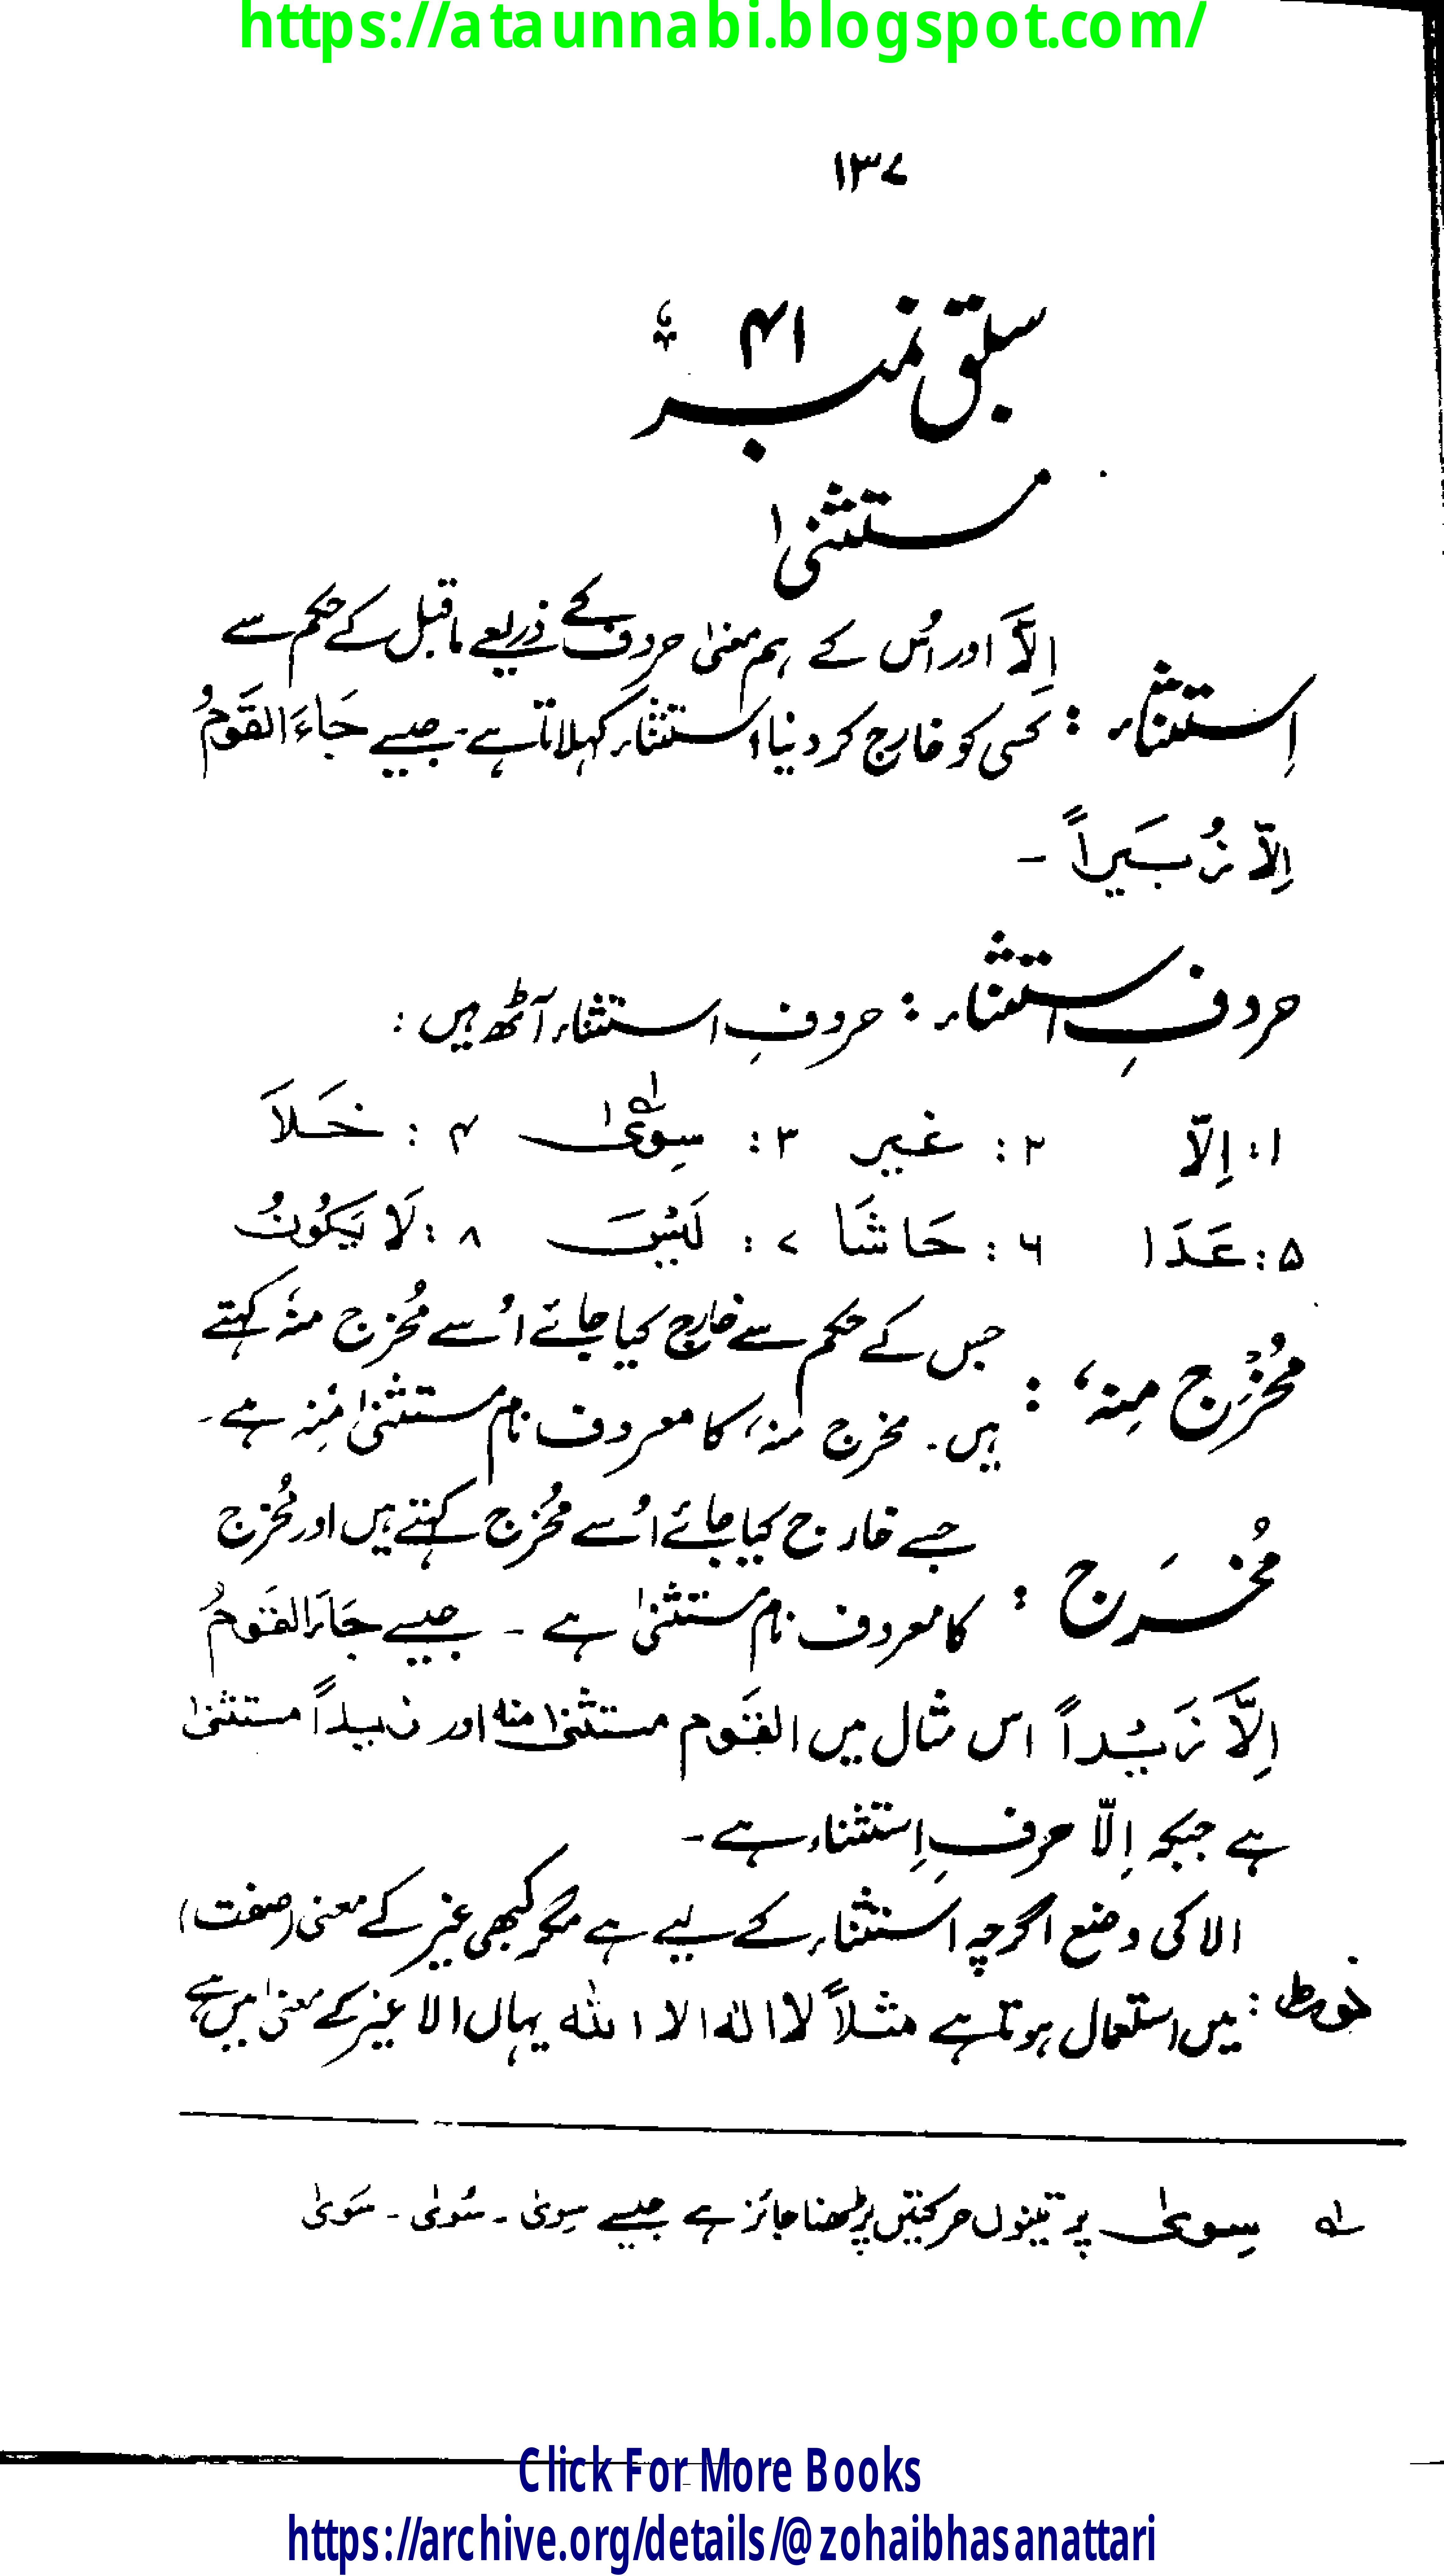 https://ataunnabi.blogspot.com/
۱۳۷
سبق نمبر ۴۱
مستثنیٰ
اِلَّا اور اُس کے ہم معنیٰ حروف کے ذریعے ماقبل کے حکم سے
اِستثناء : کسی کو خارج کر دینا استثناء کہلاتا ہے۔ جیسے جَاءَ القَوْمُ
اِلَّا زُبَیراً ۔
حروفِ استثناء : حروفِ استثناء آٹھ ہیں :
۱: اِلّا ۲: غیر ۳: سِویٰ ؎۱ ۴: خَلَا
۵: عَدَا ۶: حَاشَا ۷: لَیْسَ ۸: لَا یَکُونُ
جس کے حکم سے خارج کیا جائے اُسے مُخرج منہُ کہتے
مُخْرَج مِنہ، : ہیں۔ مخرج منہ، کا معروف نام مستثنیٰ مِنہ ہے۔
جسے خارج کیا جائے اُسے مُخرج کہتے ہیں اور مُخرج
مُخرَج : کا معروف نام مستثنیٰ ہے ۔ جیسے جَاءَ القَومُ
اِلَّا زَیْداً اس مثال میں القَوم مستثنیٰ منہ اور زیداً مستثنیٰ
ہے جبکہ اِلّا حرفِ اِستثناء ہے۔
الا کی وضع اگرچہ استثناء کے لیے ہے مگر کبھی غیر کے معنی (صفت)
نوٹ : میں استعمال ہوتا ہے مثلاً لا الٰہ الا اللہ یہاں الا غیر کے معنیٰ میں ہے
؎۱ سِویٰ پر تینوں حرکتیں پڑھنا جائز ہے جیسے سِویٰ ۔ سُویٰ ۔ سَویٰ
Click For More Books
https://archive.org/details/@zohaibhasanattari